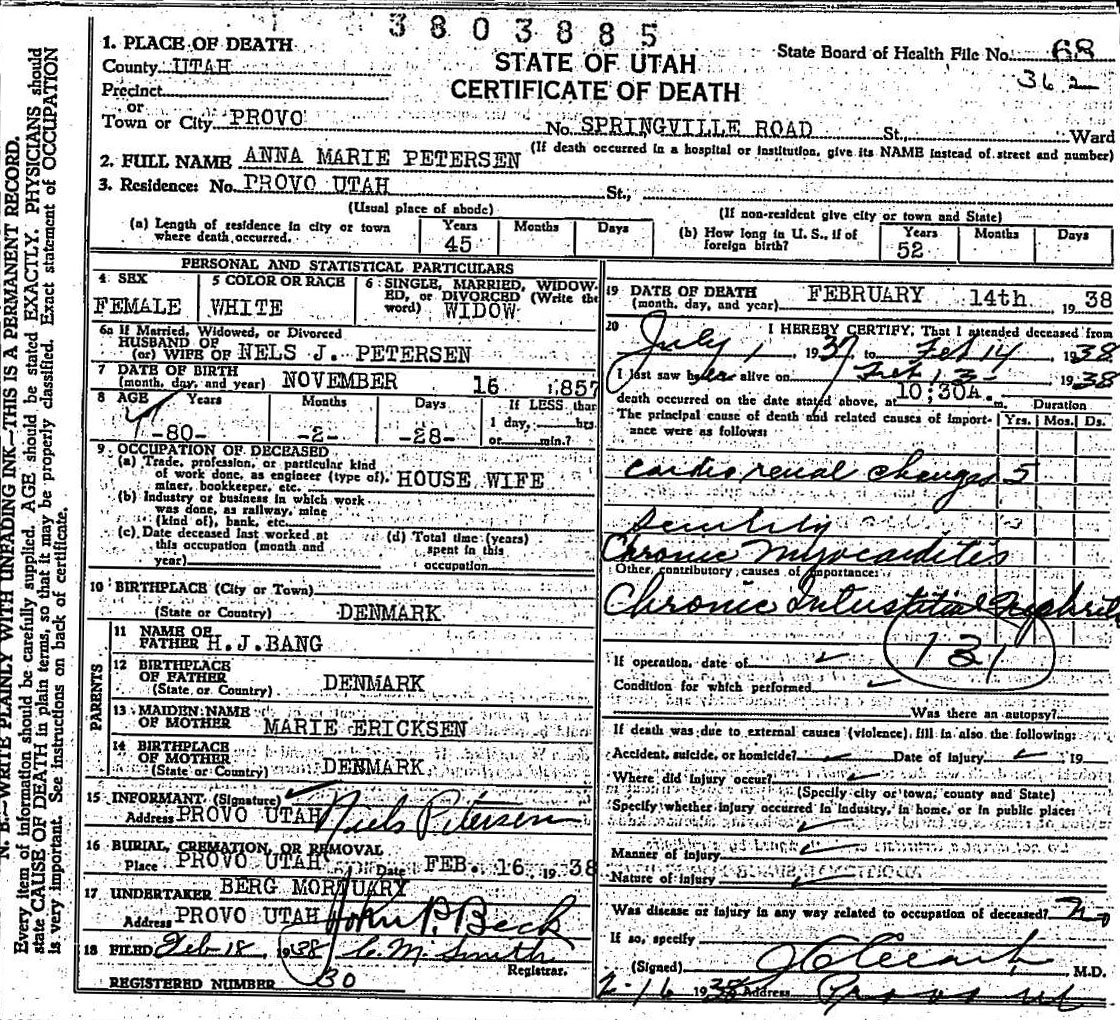 3803885
1. PLACE OF DEATH
County UTAH
STATE OF UTAH
State Board of Health File No. 68
362
Precinct
CERTIFICATE OF DEATH
or
Town or City PROVO No. SPRINGVILLE ROAD St., Ward
(If death occurred in a hospital or institution, give its NAME instead of street and number)
2. FULL NAME ANNA MARIE PETERSEN
3. Residence: No. PROVO UTAH St.,
(Usual place of abode) (If non-resident give city or town and State)
(a) Length of residence in city or town where death occurred. Years 45 Months Days
(b) How long in U. S., if of foreign birth? Years 52 Months Days
PERSONAL AND STATISTICAL PARTICULARS
4 SEX FEMALE
5 COLOR OR RACE WHITE
6 SINGLE, MARRIED, WIDOWED, or DIVORCED (Write the word) WIDOW
6a If Married, Widowed, or Divorced
HUSBAND OF
(or) WIFE OF NELS J. PETERSEN
7 DATE OF BIRTH
(month, day, and year) NOVEMBER 16 1857
8 AGE Years -80- Months -2- Days -28- If LESS than 1 day, hrs. or min.?
9 OCCUPATION OF DECEASED
(a) Trade, profession, or particular kind
of work done, as engineer (type of),
miner, bookkeeper, etc. HOUSE WIFE
(b) Industry or business in which work
was done, as railway, mine
(kind of), bank, etc.
(c) Date deceased last worked at
this occupation (month and
year)
(d) Total time (years)
spent in this
occupation
10 BIRTHPLACE (City or Town)
(State or Country) DENMARK
PARENTS
11 NAME OF
FATHER H.J.BANG
12 BIRTHPLACE
OF FATHER
(State or Country) DENMARK
13 MAIDEN NAME
OF MOTHER MARIE ERICKSEN
14 BIRTHPLACE
OF MOTHER
(State or Country) DENMARK
15 INFORMANT (Signature) Niels Petersen
Address PROVO UTAH
16 BURIAL, CREMATION, OR REMOVAL
Place PROVO UTAH Date FEB. 16 1938
17 UNDERTAKER BERG MORTUARY
Address PROVO UTAH John P. Beck
18 FILED Feb-18 1938 C. M. Smith
Registrar.
REGISTERED NUMBER 30
19 DATE OF DEATH
(month, day, and year) FEBRUARY 14th 1938
20 I HEREBY CERTIFY, That I attended deceased from
July 1, 1937 to Feb 14 1938
I last saw her alive on Feb 13- 1938
death occurred on the date stated above, at 10;30A. m. Duration
The principal cause of death and related causes of importance were as follows: Yrs. Mos. Ds.
Cardio renal changes 5
Senility
Chronic Myocarditis
Other contributory causes of importance:
Chronic Interstitial Nephritis
131
If operation, date of
Condition for which performed
Was there an autopsy?
If death was due to external causes (violence) fill in also the following:
Accident, suicide, or homicide? Date of injury 19
Where did injury occur?
(Specify city or town, county and State)
Specify whether injury occurred in industry, in home, or in public place:
Manner of injury
Nature of injury
Was disease or injury in any way related to occupation of deceased? No
If so, specify
(Signed) M.D.
2-16 1938 Address Provo Ut
N. B.—WRITE PLAINLY WITH UNFADING INK—THIS IS A PERMANENT RECORD.
Every item of information should be carefully supplied. AGE should be stated EXACTLY. PHYSICIANS should
state CAUSE OF DEATH in plain terms, so that it may be properly classified. Exact statement of OCCUPATION
is very important. See instructions on back of certificate.